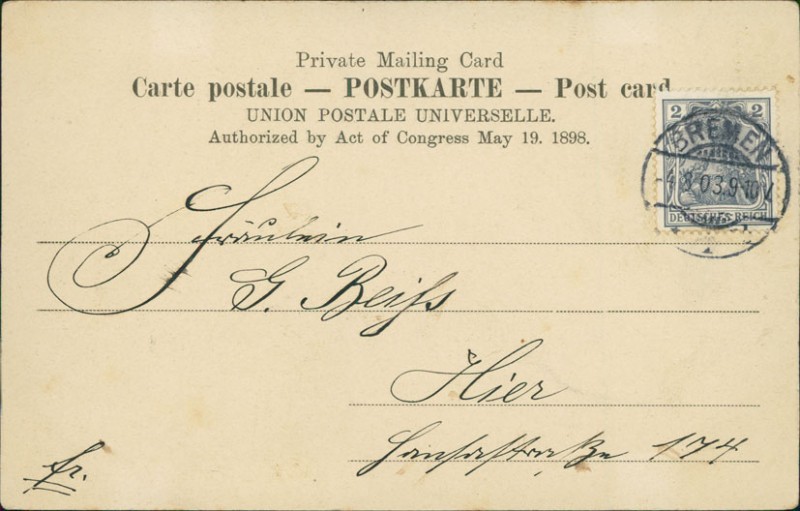 Private Mailing Card
Carte postale — POSTKARTE — Post card
UNION POSTALE UNIVERSELLE.
Authorized by Act of Congress May 19. 1898.
2 2
BREMEN
-4.8.03.9-10V
DEUTSCHES REICH
1
Fräulein
G. Beiſs
Hier
Hansastraße 174
fr.